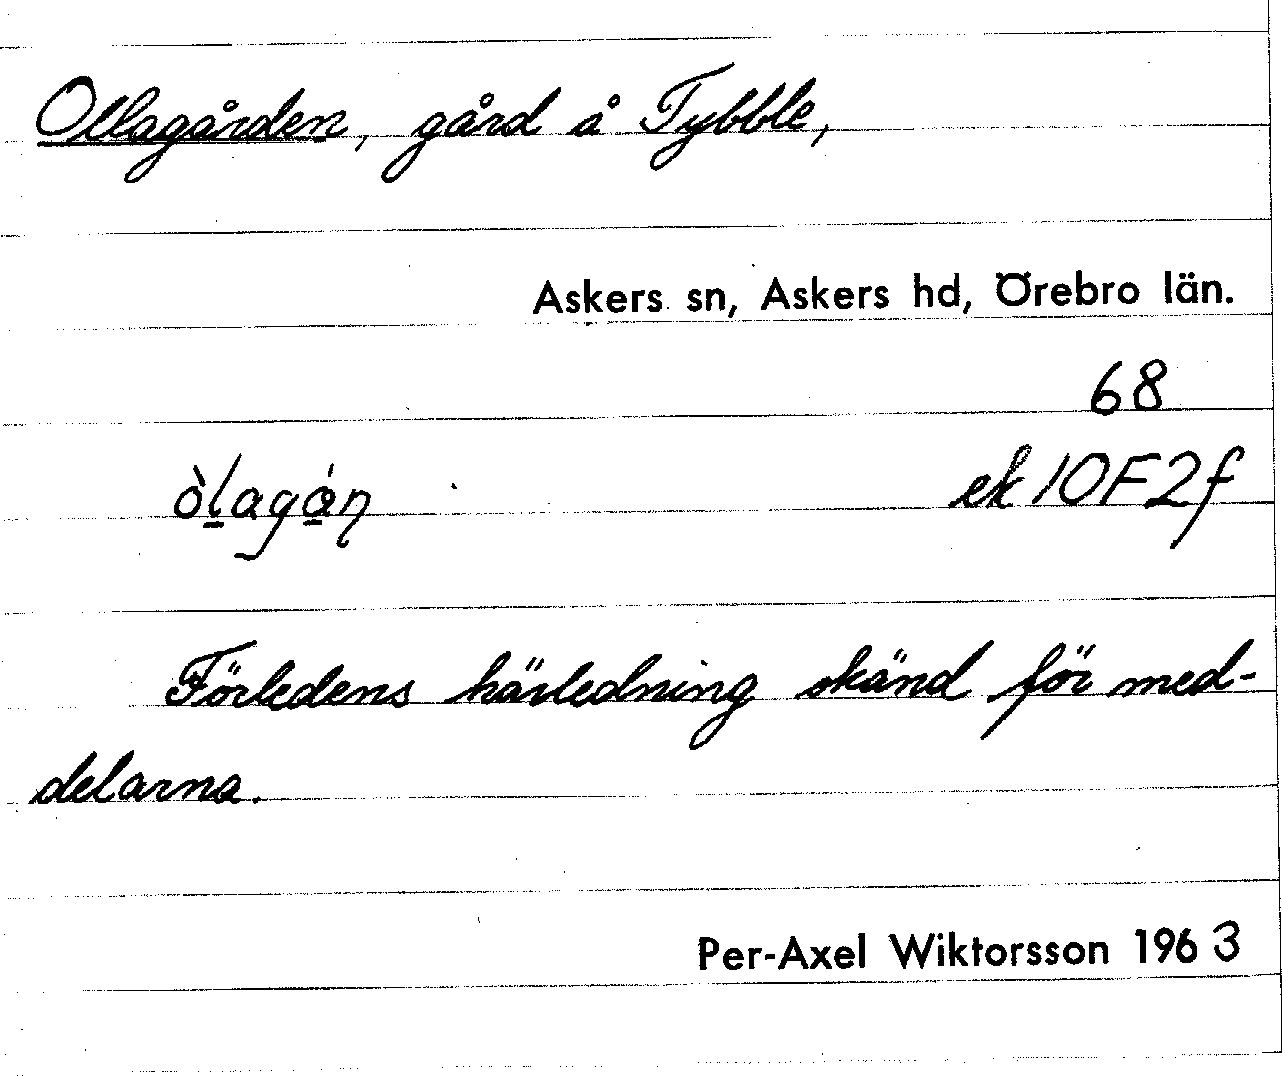 Ollagården, gård å Tybble,
Askers sn, Askers hd, Örebro län.
68
òlagán ek 10F2f
Förledens härledning okänd för med-
delarna.
Per-Axel Wiktorsson 1963